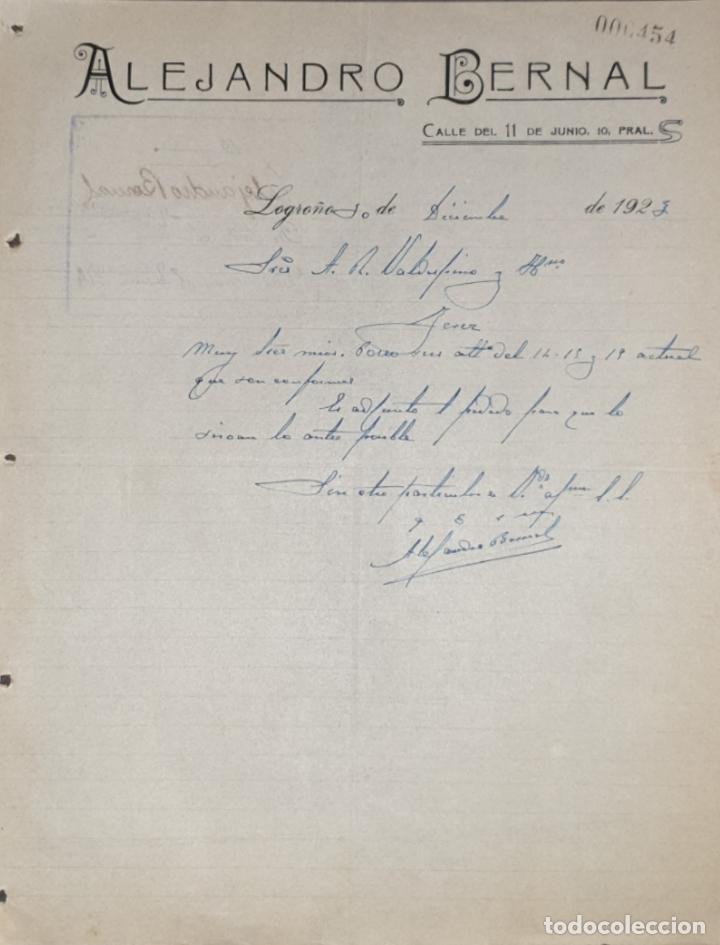 006454
ALEJANDRO BERNAL
CALLE DEL 11 DE JUNIO, 10, PRAL.
Alejandro Bernal
Logroño de Diciembre de 192
Sres A. R. Valdespino y Hno
Jerez
Muy Sres mios. Poseo sus atts del 14-15 y 19 actual
que son conformes
Es adjunto pedido para que lo
sirvan lo antes posible
Sin otro particular es Vds afmo S. S.
q e s m
Alejandro Bernal
todocoleccion.net